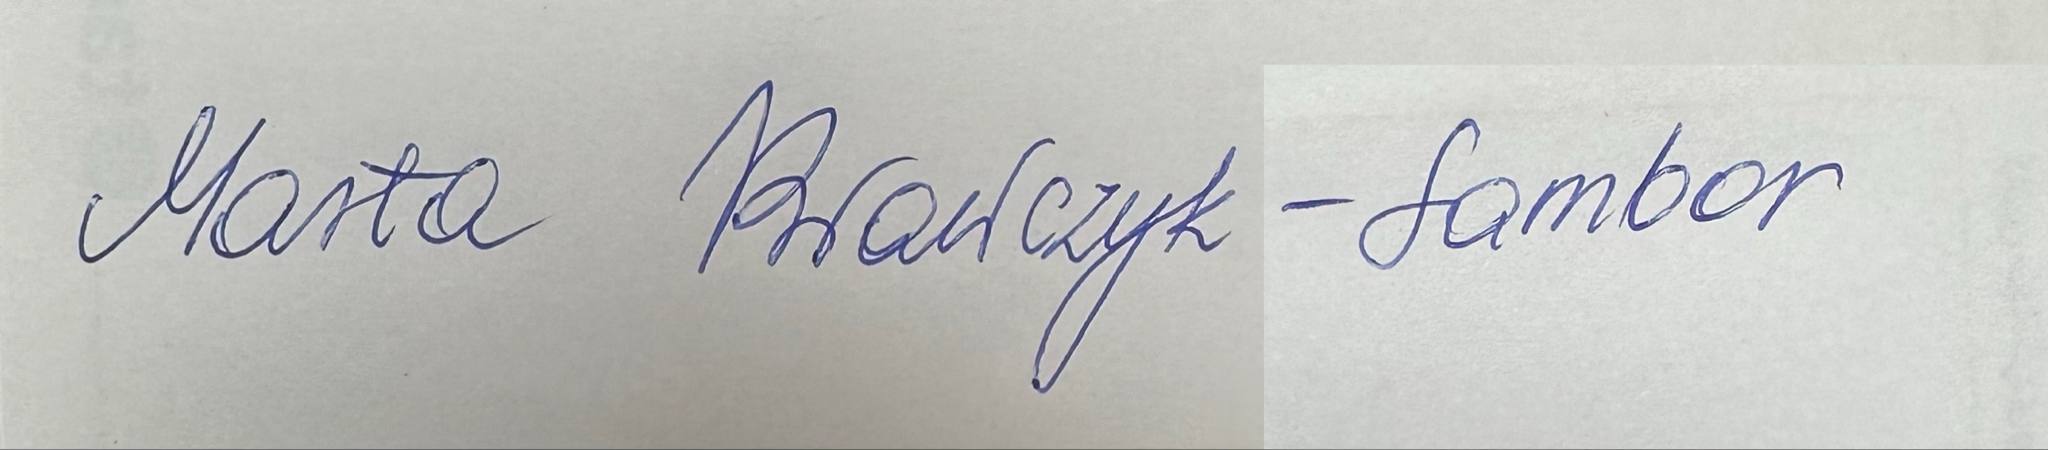 Marta Krawczyk - Sambor